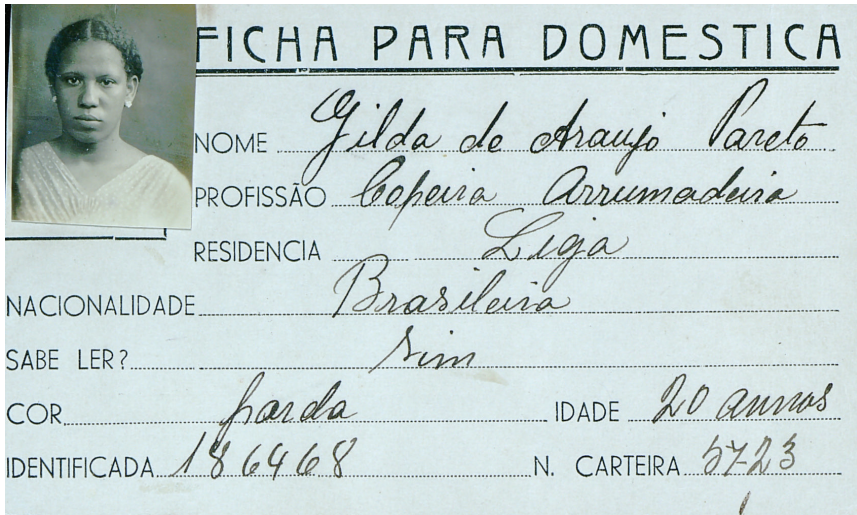 FICHA PARA DOMESTICA
NOME Gilda de Araujo Pareto
PROFISSÃO Copeira Arrumadeira
RESIDENCIA Liga
NACIONALIDADE Brasileira
SABE LER? sim
COR parda IDADE 20 annos
IDENTIFICADA 186468 N. CARTEIRA 5723